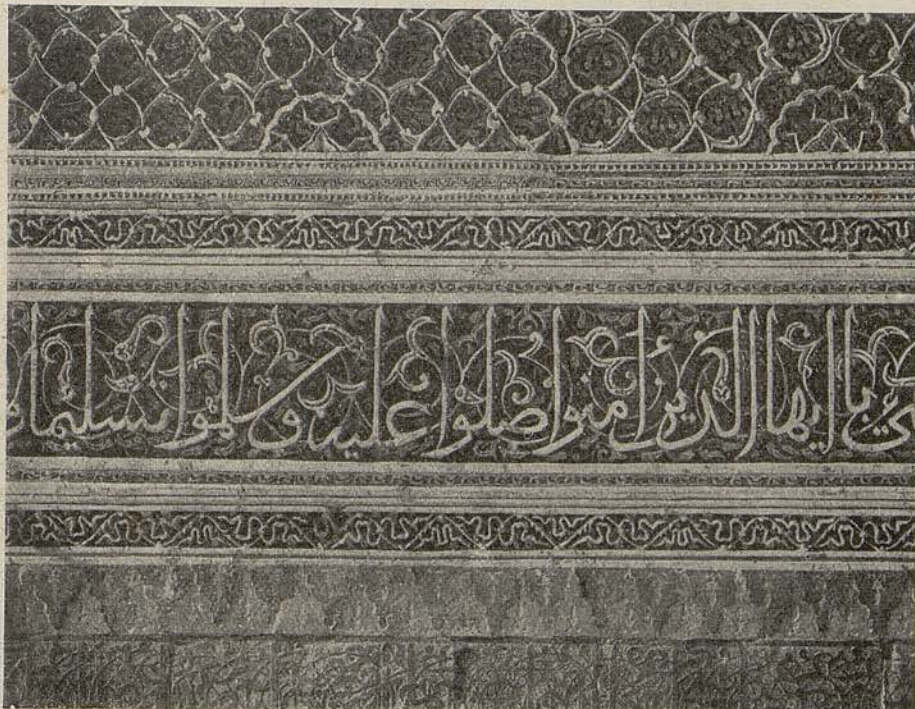 يا ايها الذين امنوا صلوا عليه و سلموا تسليما